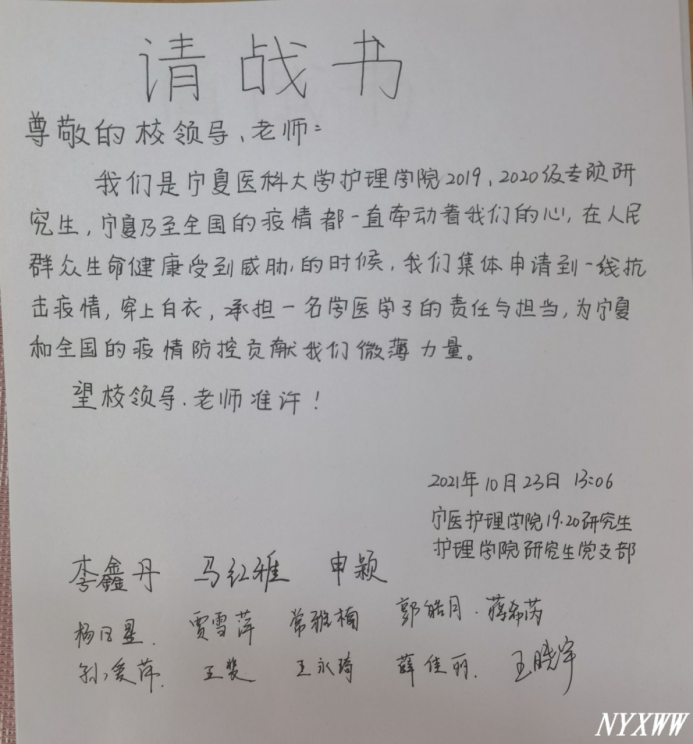 请战书
尊敬的校领导、老师:
我们是宁夏医科大学护理学院2019、2020级专硕研
究生,宁夏乃至全国的疫情都一直牵动着我们的心,在人民
群众生命健康受到威胁的时候,我们集体申请到一线抗
击疫情,穿上白衣,承担一名学医学子的责任与担当,为宁夏
和全国的疫情防控贡献我们微薄力量。
望校领导、老师准许!
2021年10月23日 13:06
宁医护理学院19.20研究生
护理学院研究生党支部
李鑫丹 马红雅 申颖
贾雪萍 常雅楠 郭皓月
王裴 王永琦 薛佳丽 王晓宇
NYXWW